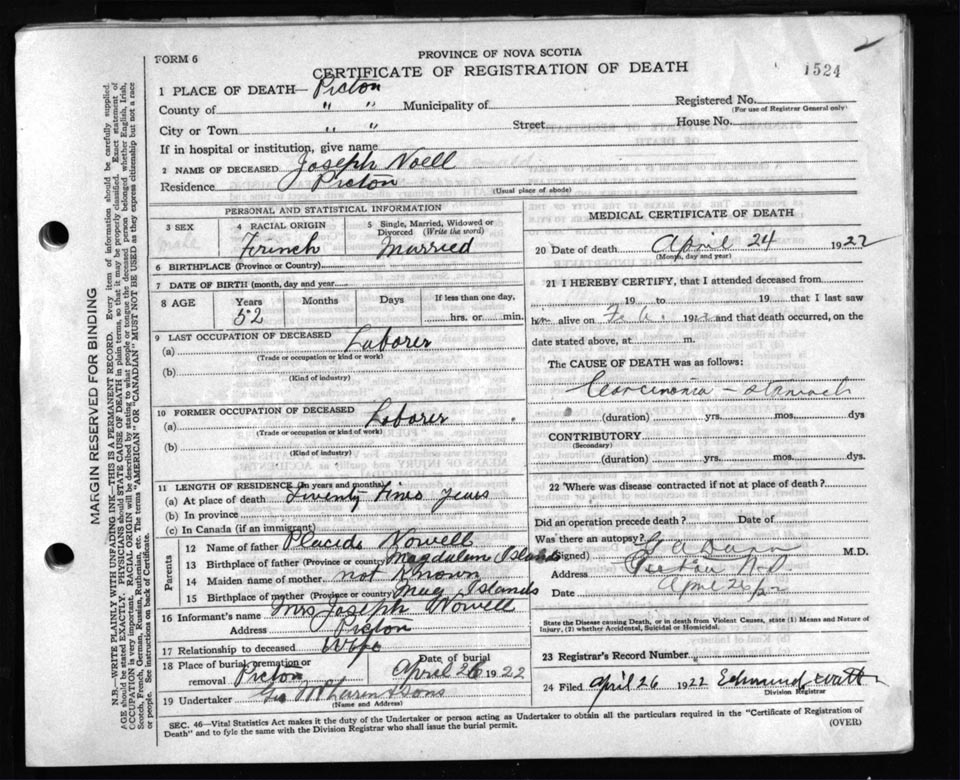 PROVINCE OF NOVA SCOTIA
FORM 6
CERTIFICATE OF REGISTRATION OF DEATH
1524
1 PLACE OF DEATH— Pictou
County of " " Municipality of
Registered No.
(For use of Registrar General only)
City or Town " " Street
House No.
If in hospital or institution, give name
2 NAME OF DECEASED Joseph Noell
Residence Pictou
(Usual place of abode)
PERSONAL AND STATISTICAL INFORMATION
3 SEX
male
4 RACIAL ORIGIN
Frinch
5 Single, Married, Widowed or Divorced (Write the word)
Married
6 BIRTHPLACE (Province or Country)
7 DATE OF BIRTH (month, day and year)
8 AGE Years Months Days If less than one day,
52 hrs. or min.
9 LAST OCCUPATION OF DECEASED
(a) Laborer
(Trade or occupation or kind or work)
(b)
(Kind of industry)
10 FORMER OCCUPATION OF DECEASED
(a) Laborer
(Trade or occupation or kind of work)
(b)
(Kind of industry)
11 LENGTH OF RESIDENCE (in years and months)
(a) At place of death Twenty Years
(b) In province
(c) In Canada (if an immigrant)
Parents
12 Name of father Placide Nowell
13 Birthplace of father (Province or country) Magdalen Islands
14 Maiden name of mother not Known
15 Birthplace of mother (Province or country) Mag Islands
16 Informant's name Mrs Joseph Nowell
Address Pictou
17 Relationship to deceased Wife
18 Place of burial, cremation or removal Pictou
Date of burial
April 26 1922
19 Undertaker Sons
(Name and Address)
MEDICAL CERTIFICATE OF DEATH
20 Date of death April 24 1922
(Month, day and year)
21 I HEREBY CERTIFY, that I attended deceased from
19 to 19 that I last saw
him alive on Feb. 19 and that death occurred, on the
date stated above, at m.
The CAUSE OF DEATH was as follows:
Carcinoma – stomach
(duration) yrs. mos. dys
CONTRIBUTORY
(Secondary)
(duration) yrs. mos. dys.
22 Where was disease contracted if not at place of death?
Did an operation precede death? Date of
Was there an autopsy?
(Signed) M.D.
Address Pictou N.S.
Date April 26/22
State the Disease causing Death, or in death from Violent Causes, state (1) Means and Nature of
Injury, (2) whether Accidental, Suicidal or Homicidal.
23 Registrar's Record Number
24 Filed April 26 1922 Edmund
Division Registrar
SEC. 46—Vital Statistics Act makes it the duty of the Undertaker or person acting as Undertaker to obtain all the particulars required in the "Certificate of Registration of
Death" and to fyle the same with the Division Registrar who shall issue the burial permit.
(OVER)
MARGIN RESERVED FOR BINDING
N.B.—WRITE PLAINLY WITH UNFADING INK—THIS IS A PERMANENT RECORD. Every item of information should be carefully supplied.
AGE should be stated EXACTLY. PHYSICIANS should STATE CAUSE OF DEATH in plain terms, so that it may be properly classified. Exact statement of
OCCUPATION is very important. RACIAL ORIGIN will be described by stating to what people or tongue the deceased person belonged whether English, Irish,
Scotch, French, German, Russian, Ruthenian, etc. The terms "AMERICAN" OR "CANADIAN" MUST NOT BE USED as they express citizenship but not a race
or people. See instructions on back of Certificate.